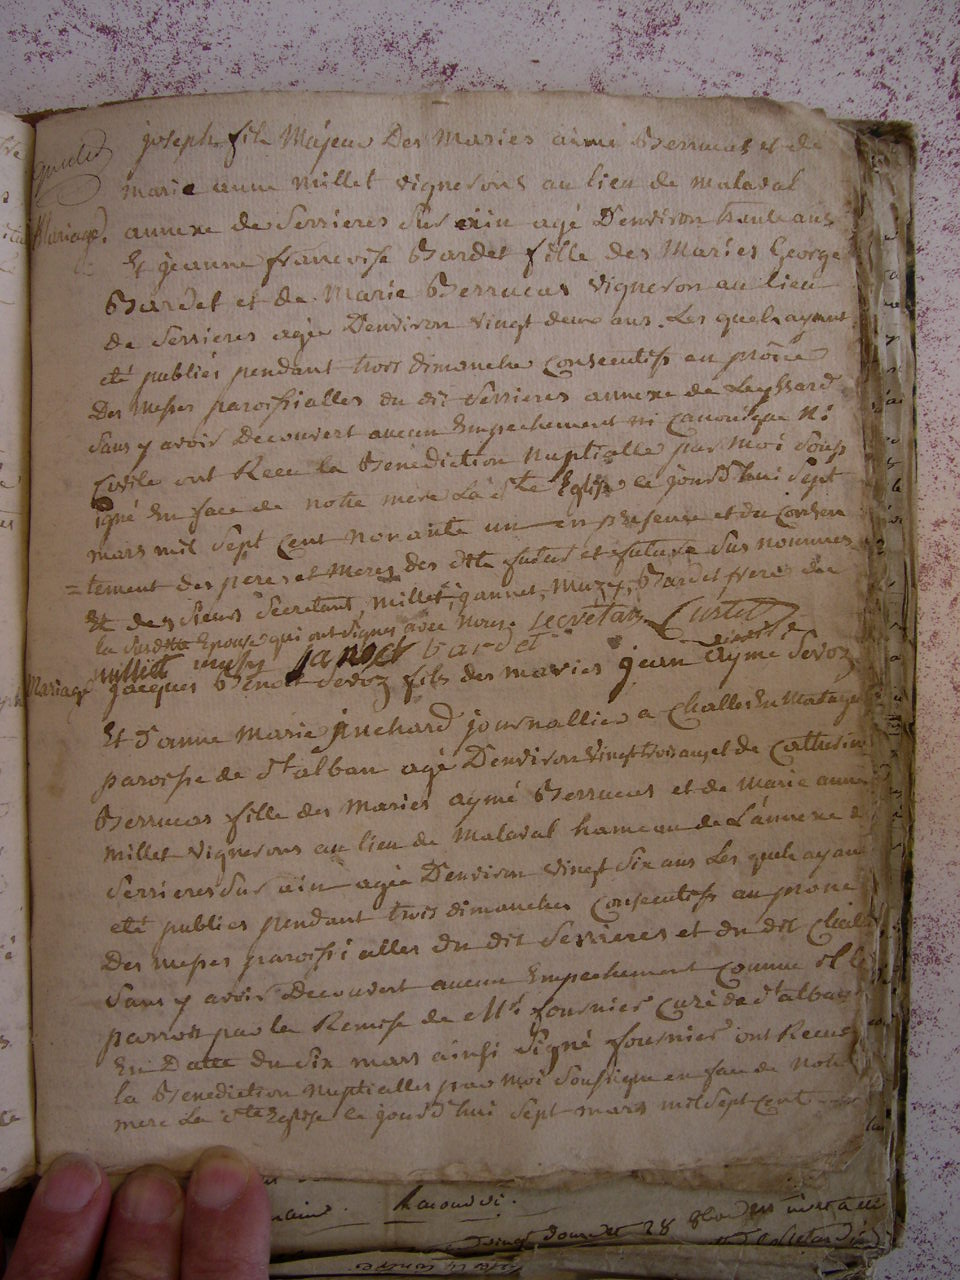 joseph fils Majeur Des Maries aimé Berrucas et de
marie anne millet vignerons au lieu de malaval
Mariage. annexe de Serrieres Sur ain agé D'environ trente ans
Et jeanne françoise Bardet fille des Mariés George
Bardet et de Marie Berrucas vigneron au lieu
de Serrieres agée D'environ vingt deux ans. Les quels ayant
eté publiés pendant trois dimanche Consecutifs au prône
Des messes paroissialles du dit Serrieres annexe de Leyssard
Sans y avoir Decouvert aucun Empechement ni Canonique Ni
Civile ont Recu la Bénédiction Nuptialle par Moi Souss
igné En face de notre mere La Ste Eglise ce jourd'hui Sept
mars mil Sept Cent nonante un en presence et du Consen
= tement des peres et Meres des dits futur et future Sus nommés
Et des Sieurs Secretant, Millet, jannet, Muzy, Bardet frere de
la Susditte Epouse qui ont Signes avec nous. Secretan Curtet
milliet muzy janoet bardet vicaire
Mariage Jacques Benoit Sevoz fils des maries jean Aymé Sevoz
Et D'anne Marie juchard journallier a Challes En
paroisse de St alban agé D'environ vingt trois ans et de Catherine
Berrucas fille des Mariés aymé Berrucas et de Marie anne
Millet vignerons au lieu de Malaval hameau de L'annexe de
Serrieres Sur ain agée D'environ vingt Six ans Les quels ayant
eté publies pendant trois dimanches Consecutifs au prone
Des messes paroissialles du dit Serrieres et du dit Challes
Sans y avoir Decouvert aucun Empechement Comme il
parroit par la Remise de Mr. fournier Curé de St alban
En Datte du Six mars ainsi Signé fournier ont Recue
la Benediction Nuptialle par moi Soussigné en face de Notre
mere La Ste Eglise ce jourd'hui Sept mars mil Sept Cent
vingt
28